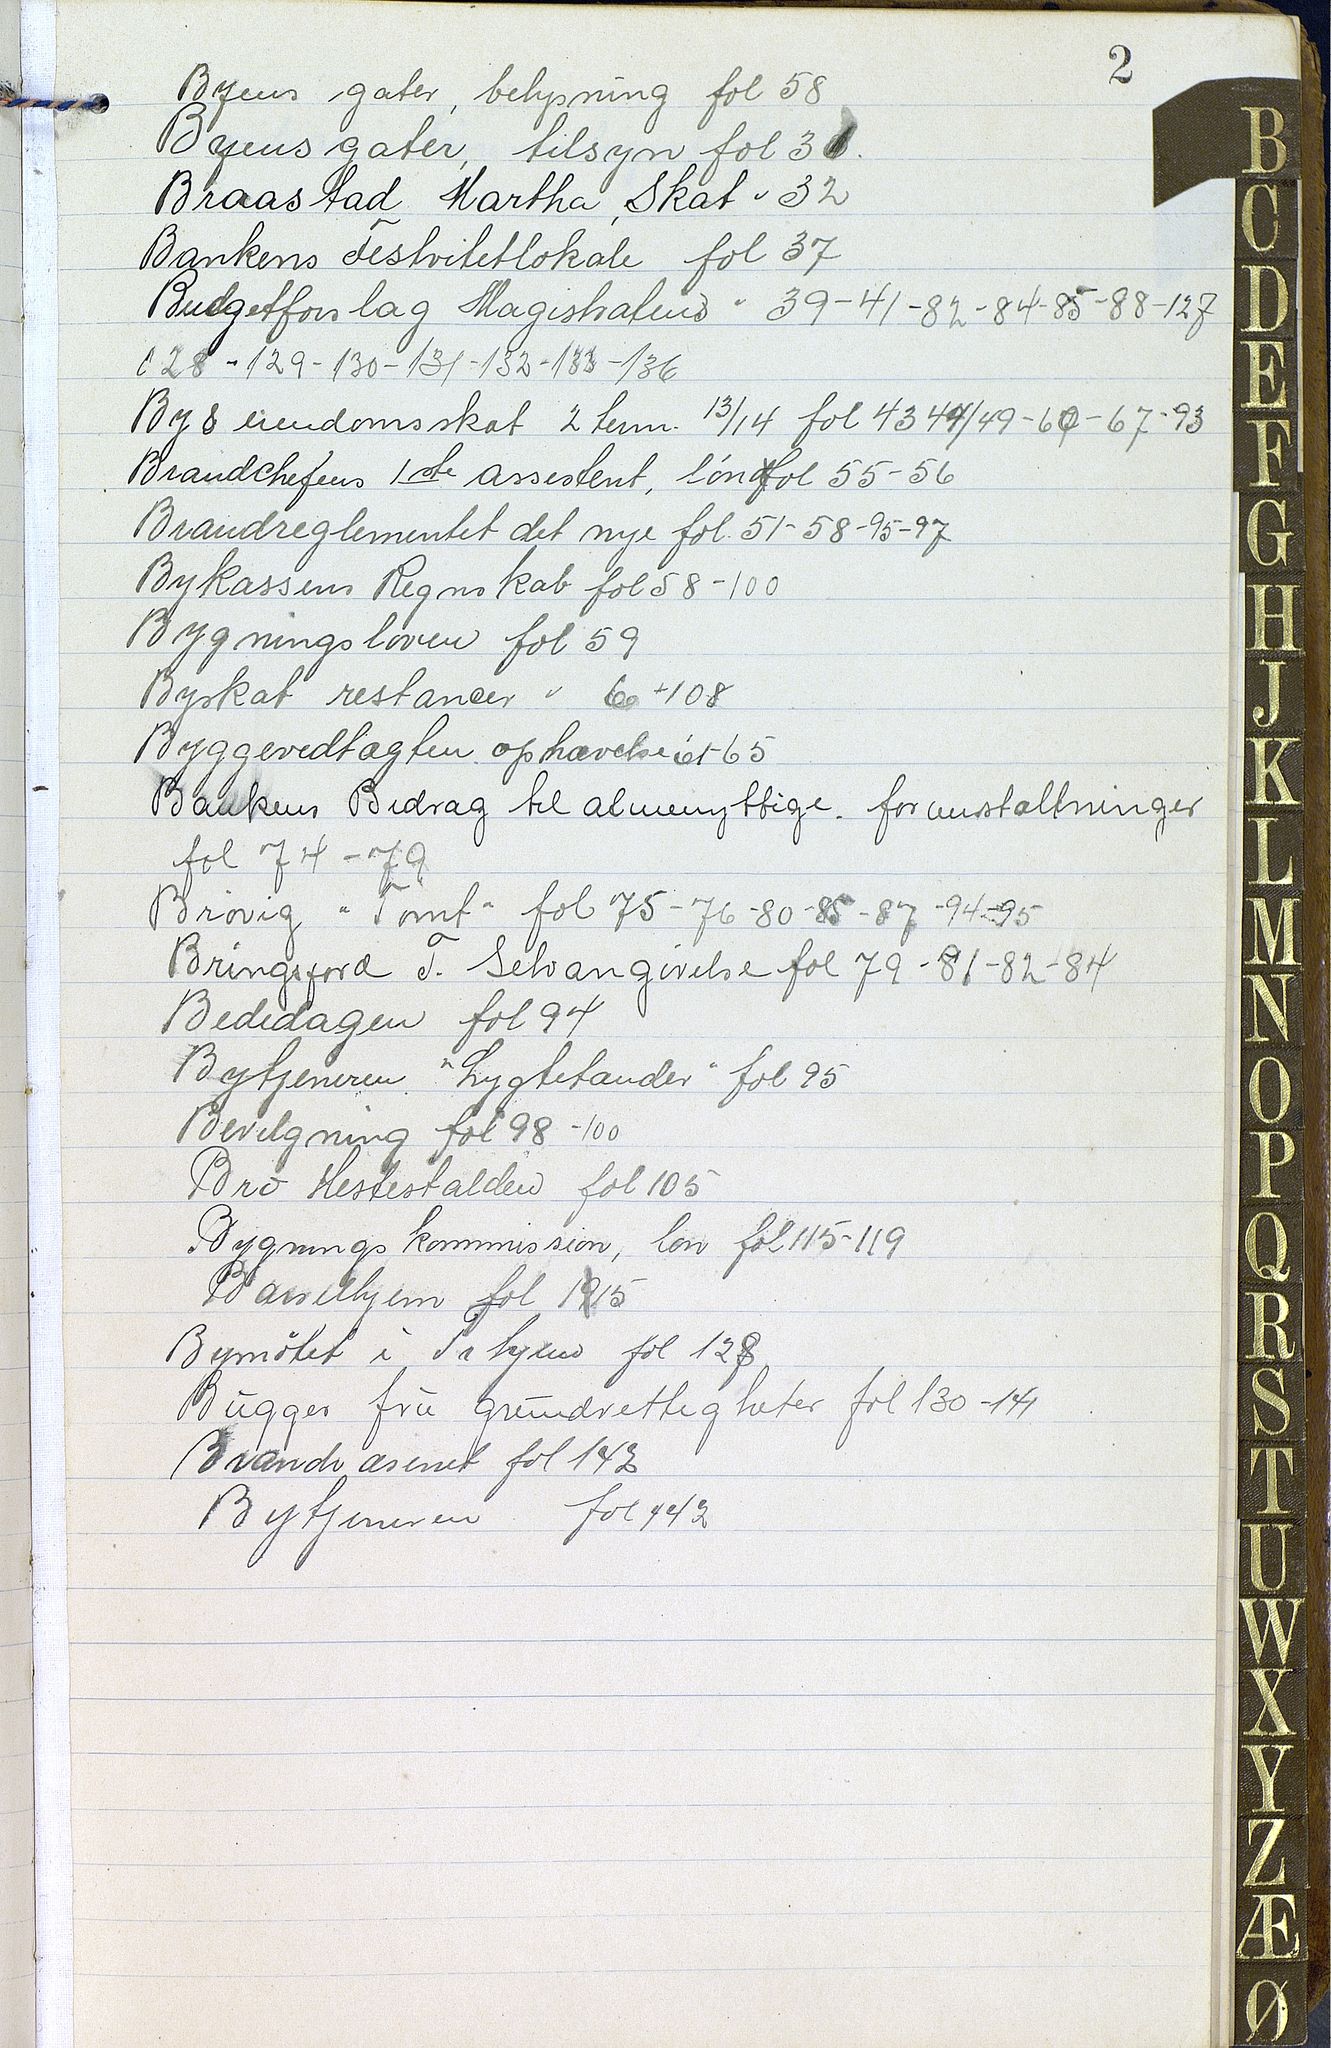 2
Byens gater, belysning fol 58
Byens gater, tilsyn fol 31.
Braastad Martha, Skat " 32
Bankens Festvitetlokale fol 37
Budgetforslag Magistratens " 39-41-82-84-85-88-127
128-129-130-131-132-133-136
By & eiendomsskat 2 term. 13/14 fol 43 44/49-60-67-93
Brandchefens 1ste assistent, løn fol 55-56
Brandreglementet det nye fol. 51-58-95-97
Bykassens Regnskab fol 58-100
Bygningsloven fol 59
Byskat restancer " 60-108
Byggevedtægten ophævelse 61-65
Bankens Bidrag til almenyttige foranstaltninger
fol 74-79
Brøvig "Tomt" fol 75-76-80-85-87-94-95
Bringsjord T. Selvangivelse fol 79-81-82-84
Bededagen fol 94
Bytjeneren "Lygtetander" fol 95
Bevilgning fol 98-100
Bro Hestestalden fol 105
Bygningskommission, løn fol 115-119
fol 115
Bymötet i Trhjem fol 128
Bugges fru grundrettigheter fol 130-141
Brandvæsenet fol 142
Bytjeneren fol 142
B
C
D
E
F
G
H
J
K
L
M
N
O
P
Q
R
S
T
U
W
X
Y
Z
Æ
Ø